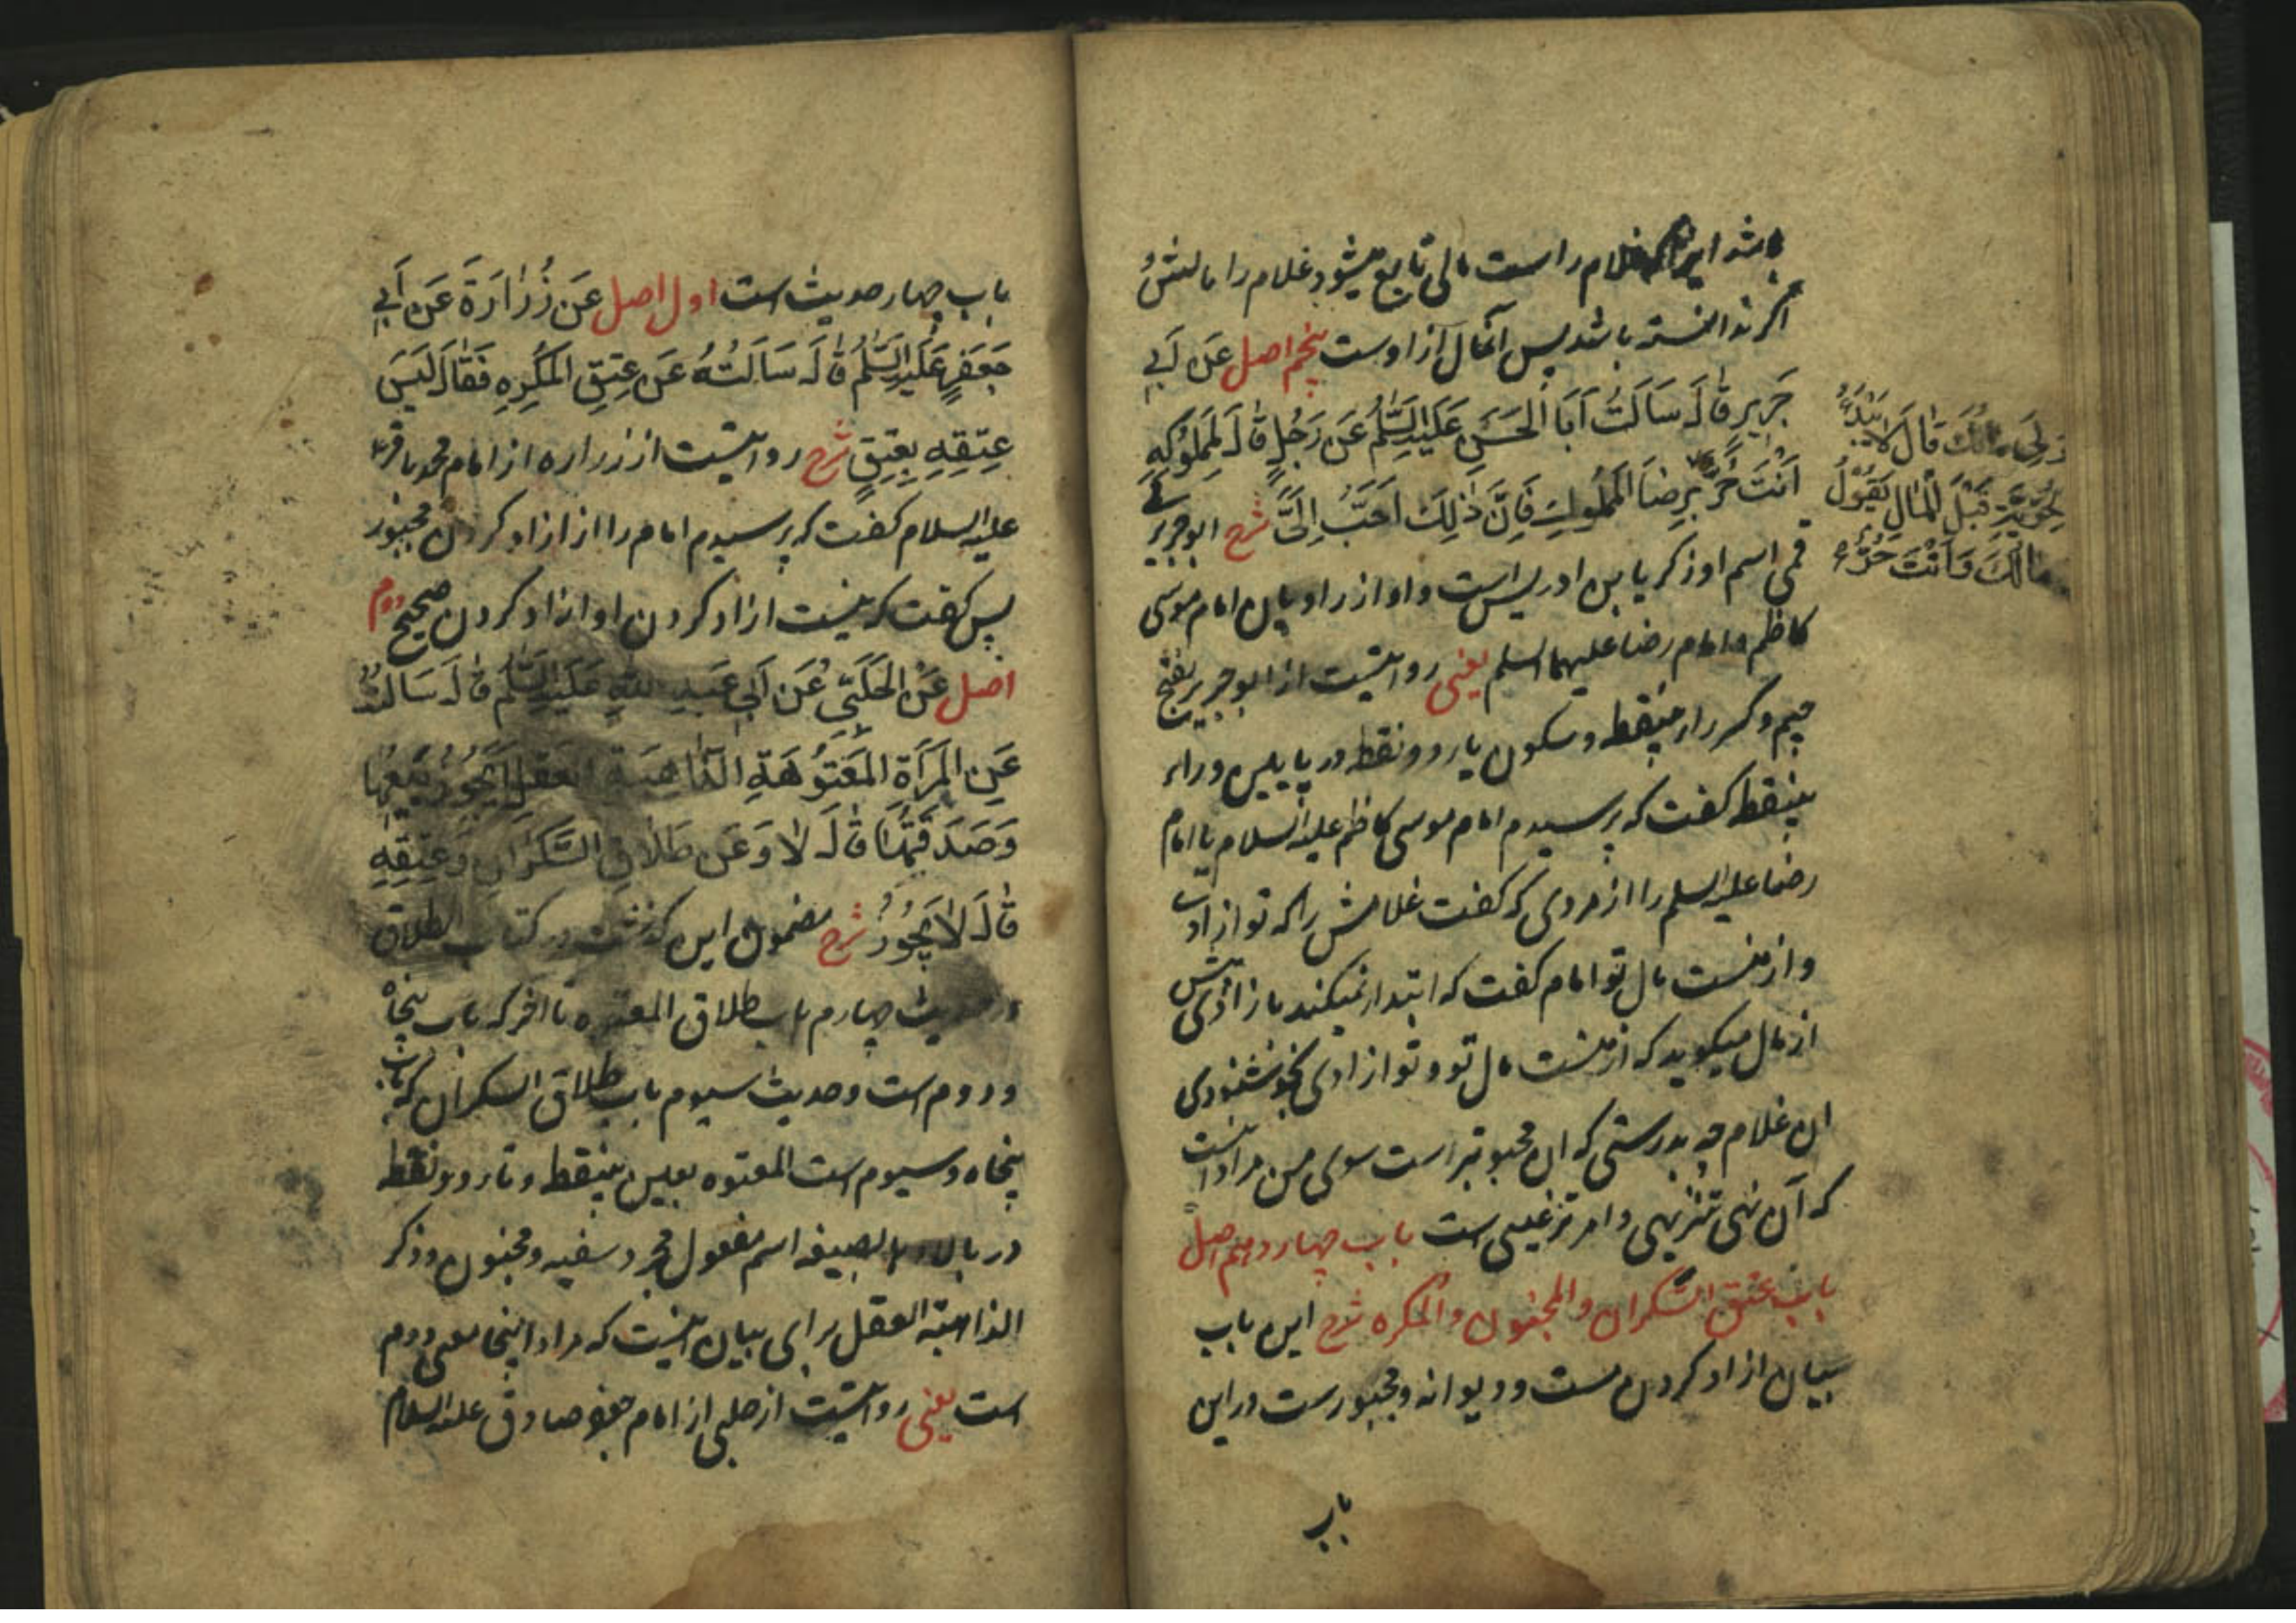 باشد اینکه غلام را است مالی تابع میشود غلام را مالش و
اگر ندانسته باشد پس آنمال از اوست پنجم اصل عَن اَبی
جَریرٍ قٰالَ سَاَلتُ اَبَا الحَسَنِ عَلَیهِ السَّلٰمُ عَن رَجُلٍ قٰالَ لِمَملُوکِهِ
اَنتَ حُرٌّ بِرِضَا المَملُوکِ فَاِنَّ ذٰلِکَ اَحَبُّ اِلَیَّ شرح ابو جریر
وَلِی مالُکَ قَالَ لَا یَبْدَءُ
بِالحُرِّیَّةِ قَبْلَ المَالِ یَقُولُ لِی
مالُکَ وَاَنْتَ حُرٌّ
قمی اسم او زکریا بن ادریس است و او از راویان امام موسی
کاظم و امام رضا علیهما السلم یعنی روایتست از ابو جریر بفتح
جیم و کسر راء بینقطه و سکون یاء دو نقطه در پایین و راء
بینقطه گفت که پرسیدم امام موسی کاظم علیه السلام یا امام
رضا علیه السلم را از مردی که گفت غلامش را که تو ازادی
و از منست مال تو امام گفت که ابتدا نمیکند بازادیش پیش
از مال میگوید که از منست مال تو و تو ازادی بخوشنودی
ان غلام چه بدرستی که ان محبوبتر است سوی من مراد اینست
که آن نهی تنزیهی و امر ترغیبی است باب چهاردهم اصل
باب عتق السکران و المجنون و المکره شرح این باب
بیان ازاد کردن مست و دیوانه و مجبورست در این
باب
باب چهار حدیث است اول اصل عَن زُرٰارَةَ عَن اَبی
جَعفَرٍ عَلَیهِ السَّلٰمُ قٰالَ سَاَلتُهُ عَن عِتقِ المُکرَهِ فَقٰالَ لَیسَ
عِتقُهُ بِعِتقٍ شرح روایتست از زراره از امام محمد باقر
علیه السلام گفت که پرسیدم امام را از ازاد کردن مجبور
پس گفت که نیست ازاد کردن او ازاد کردن صحیح دوم
اصل عَنِ الحَلَبِیِّ عَن اَبی عَبدِ اللهِ عَلَیهِ السَّلٰمُ قٰالَ سَاَلتُهُ
عَنِ المَراَةِ المَعتُوهَةِ الذّٰاهِبَةِ العَقلِ اَیَجُوزُ بَیعُهٰا
وَصَدَقَتُهٰا قٰالَ لٰا وَعَن طَلٰاقِ السَّکرٰانِ وَعِتقِهِ
قٰالَ لٰا یَجُوزُ شرح مضمون این گذشت در کتاب الطلاق
در حدیث چهارم باب طلاق المعتوه تا اخر که باب پنجاه
و دوم است و حدیث سیوم باب طلاق السکران که باب
پنجاه و سیوم است المعتوه بعین بینقطه و تاء دو نقطه
در بالا بصیغه اسم مفعول مجرد سفیه و مجنون و ذکر
الذاهبة العقل برای بیان اینست که مراد اینجا معنی دوم
است یعنی روایتست از حلبی از امام جعفر صادق علیه السلام